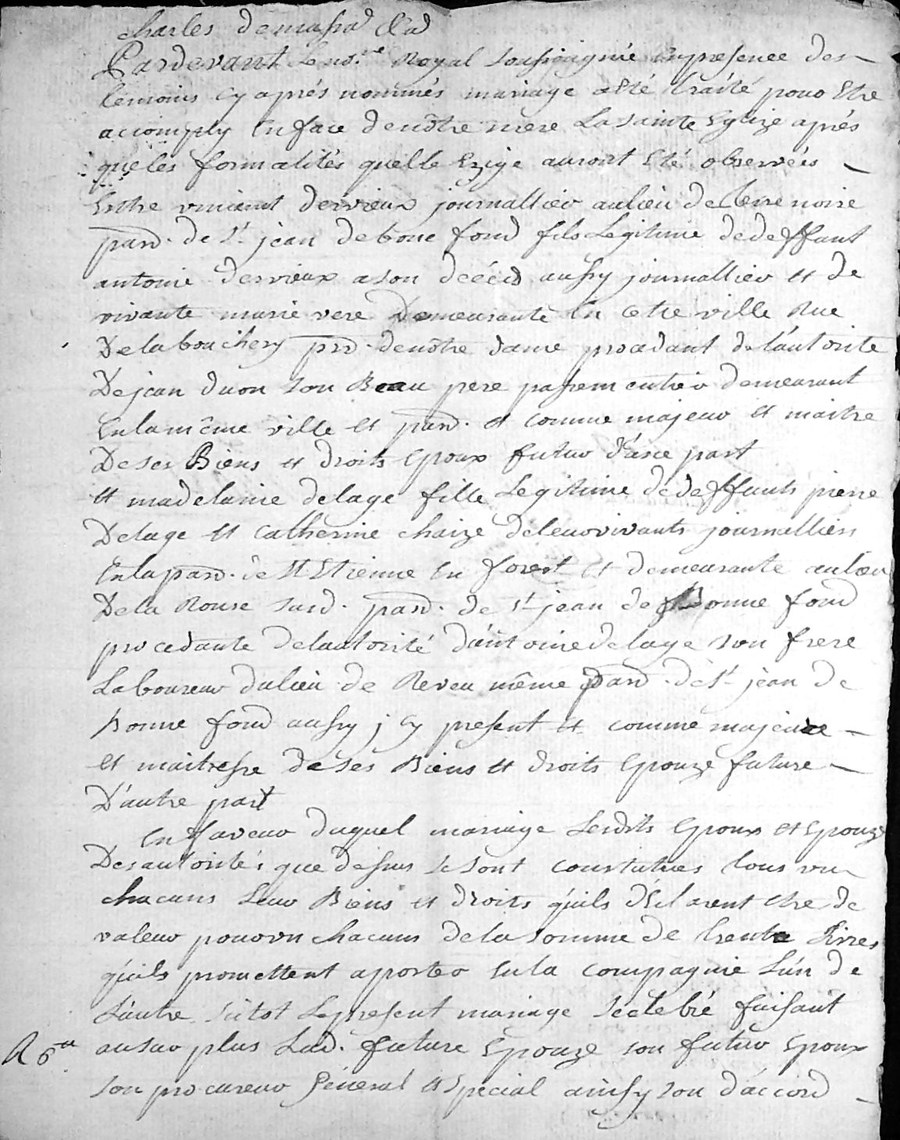 charles demasra
Pardevant Le no.re Royal soussigné en presence des
temoins cy aprés nommés mariage a eté traité pour etre
accomply en face de notre mere La sainte Eglize aprés
que les formalités qu'elle Exige auront eté observées
Entre vincent dervieux journallier au lieu de terre noire
paro. de st. jean de bonc fond fils Legitime de deffunt
antoine dervieux a son décéd aussy journallier et de
vivante marie vere Demeurante En cette ville Rue
De la bouchery paro. de notre dame procedant de L'autorité
De jean duon son Beau pere passementier demeurant
En la même ville et paro. et comme majeur et maitre
De ses Biens et droits Epoux futur d'une part
et madelaine delage fille Legitime de deffunts pierre
Delage et catherine chaize de leur vivants journalliers
En la paro. de St Etienne en forest et demeurante au lieu
De la Rouse susd. paro. de st. jean de Bonne fond
procedante de L'autorité d'antoine delage son frere
Laboureur du lieu de Reveu même paro. de st. jean de
Bonne fond aussy j cy present et comme majeure
et maitresse de ses Biens et droits Epouze future
D'autre part
En faveur duquel mariage Lesdits Epoux et Epouze
Des autorités que dessus se sont constitués tous un
chacuns Leur Biens et droits qu'ils déclarent etre de
valeur pour un chacuns de la somme de trente Livres
qu'ils promettent aporter en la compagnie L'un de
L'autre sitot Le present mariage celebré faisant
au sur plus Lad. future Epouze son futur Epoux
son procureur Général et special ainsy son d'accord
R 6